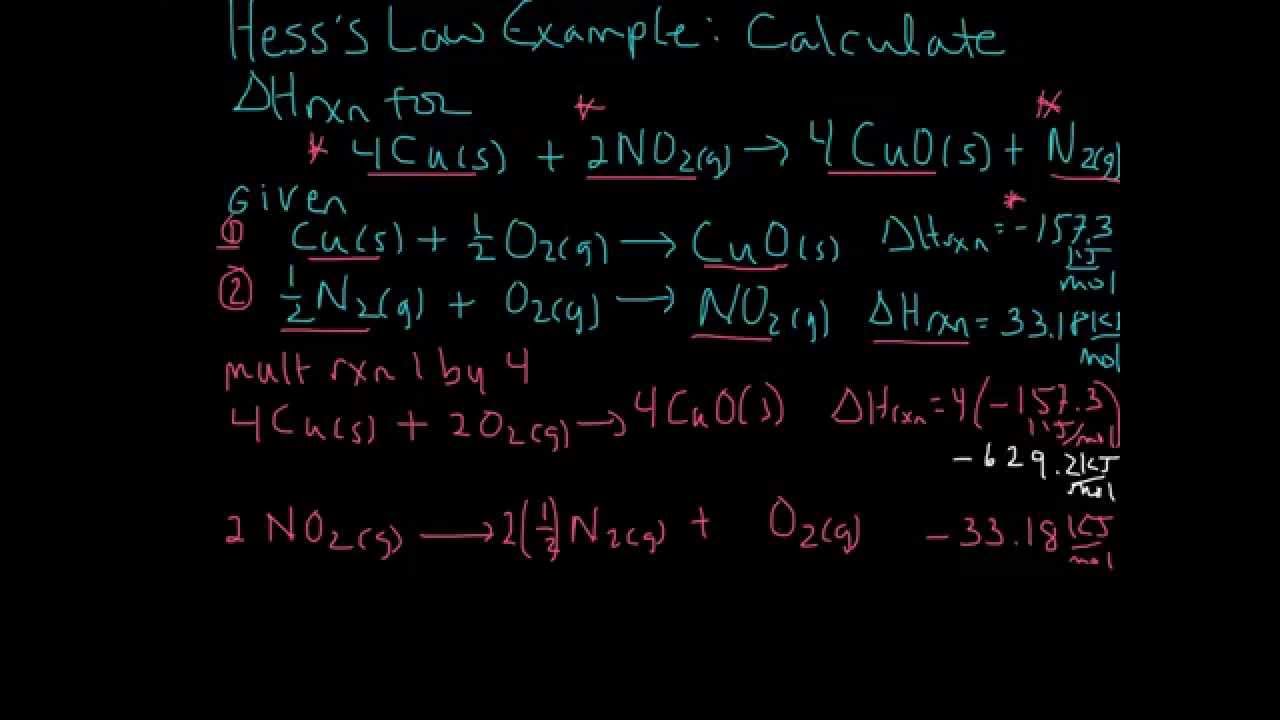 Hess's Law Example: Calculate
ΔHrxn for
* 4Cu(s) + 2NO₂(g) → 4CuO(s) + N₂(g)
Given
① Cu(s) + ½O₂(g) → CuO(s) ΔHrxn = -157.3 kJ/mol
② ½N₂(g) + O₂(g) → NO₂(g) ΔHrxn = 33.18 kJ/mol
mult rxn 1 by 4
4Cu(s) + 2O₂(g) → 4CuO(s) ΔHrxn = 4(-157.3 kJ/mol)
-629.2 kJ/mol
2 NO₂(g) → 2(½)N₂(g) + O₂(g) -33.18 kJ/mol